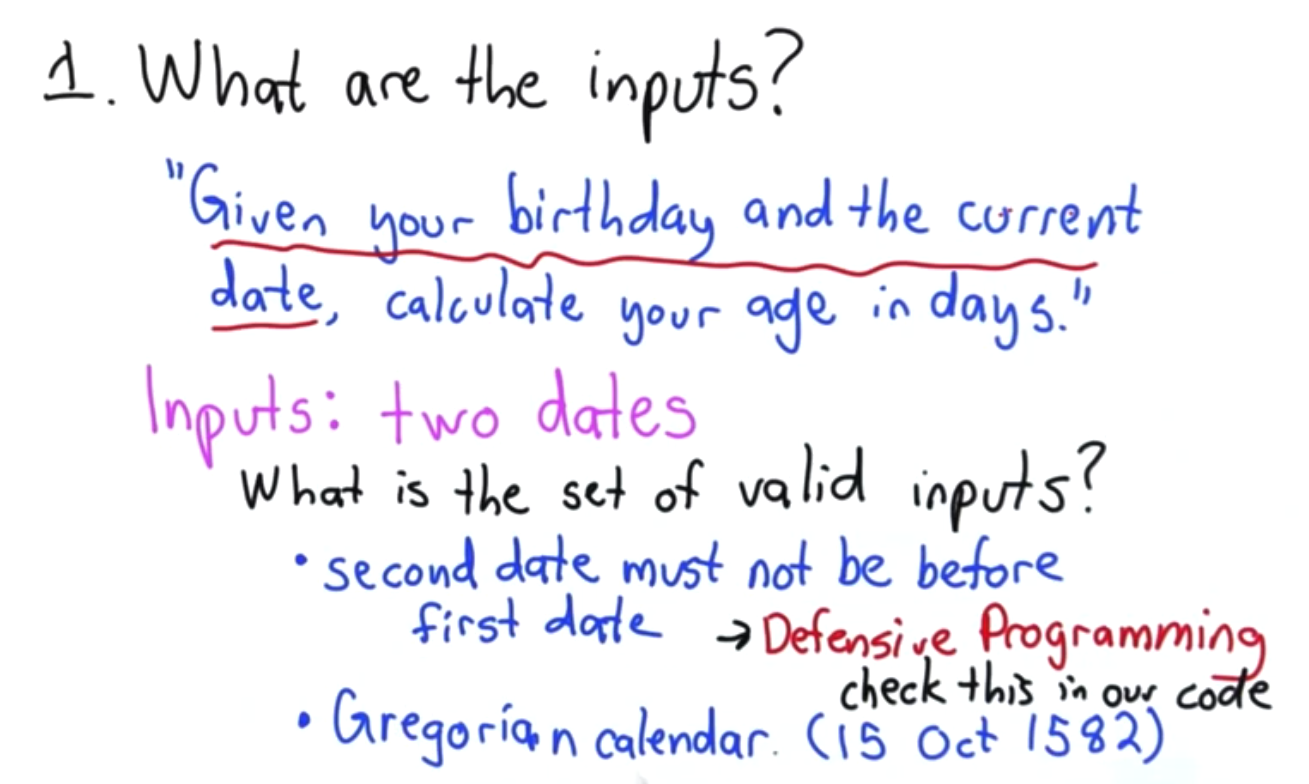 1. What are the inputs?
"Given your birthday and the current
date, calculate your age in days."
Inputs: two dates
What is the set of valid inputs?
• second date must not be before
first date → Defensive Programming
check this in our code
• Gregorian calendar. (15 Oct 1582)